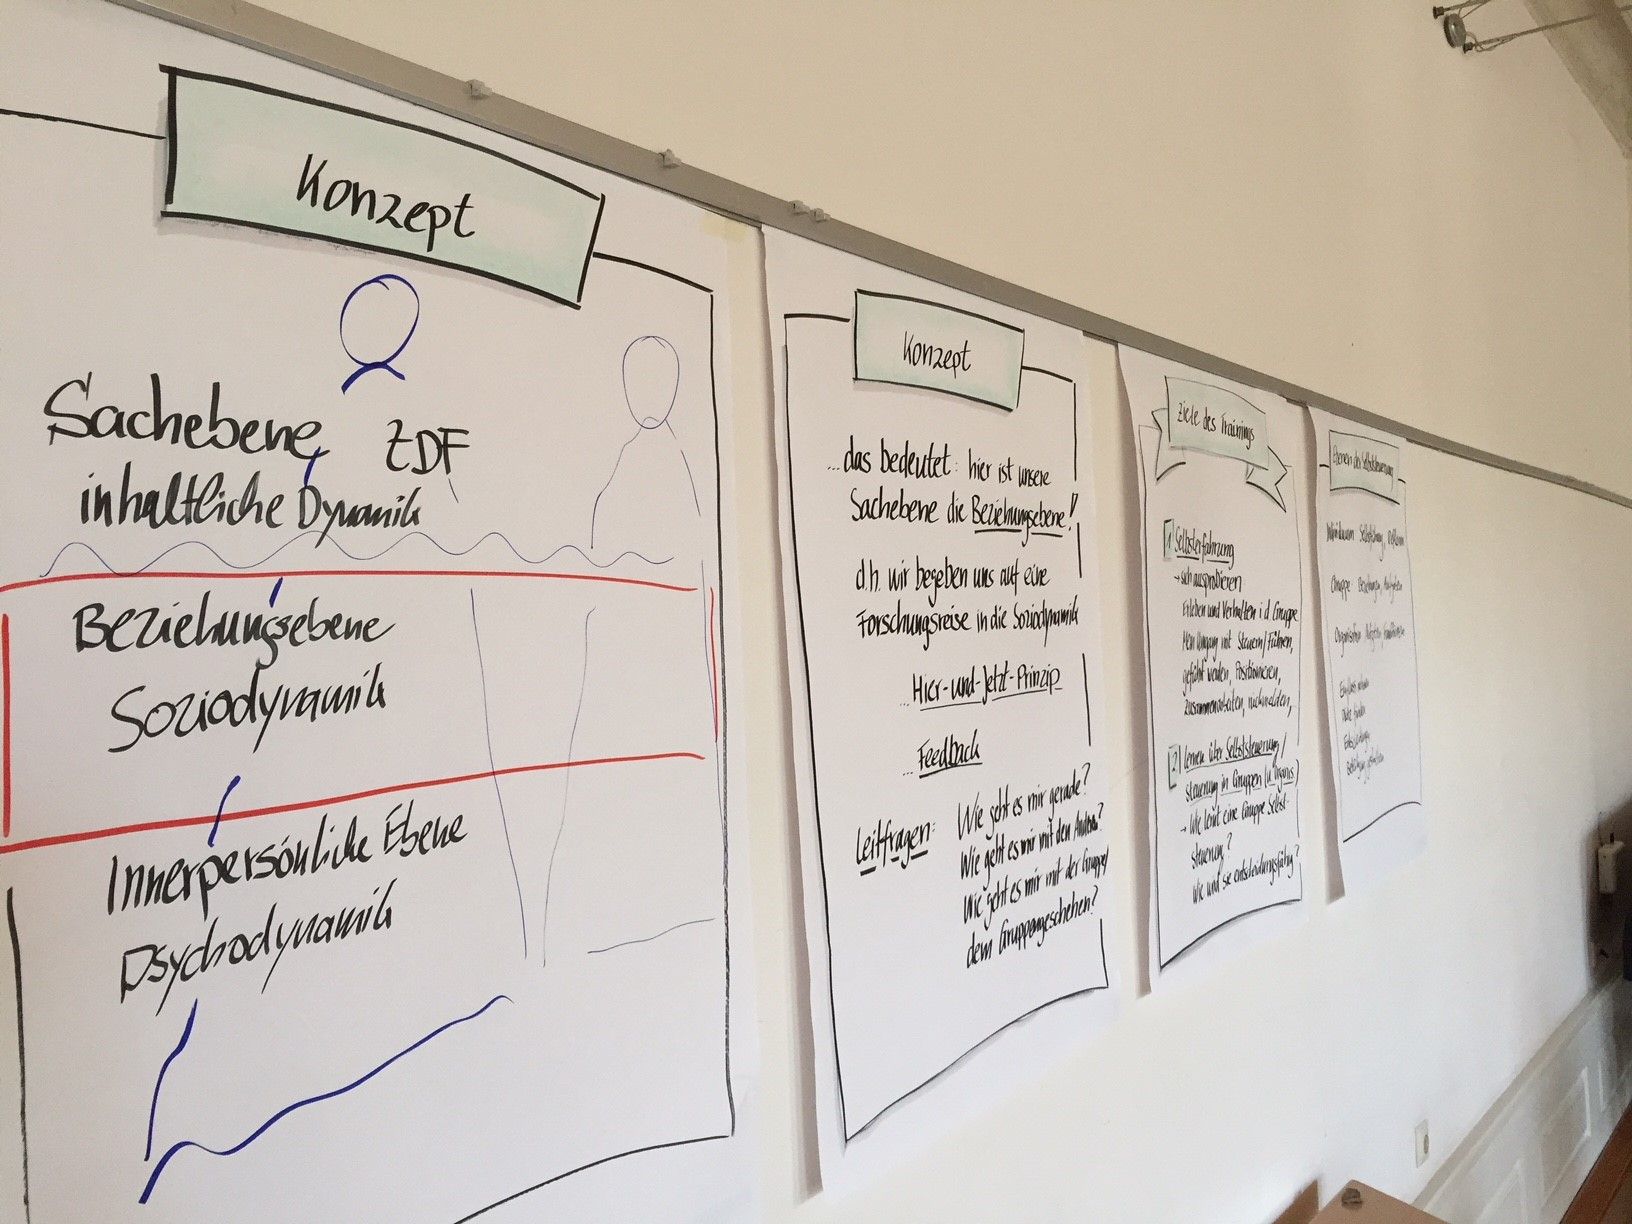 Konzept
Sachebene ZDF
inhaltliche Dynamik
Beziehungsebene
Soziodynamik
Innerpersönliche Ebene
Psychodynamik
Konzept
...das bedeutet: hier ist unsere
Sachebene die Beziehungsebene!
d.h. wir begeben uns auf eine
Forschungsreise in die Soziodynamik
... Hier-und-Jetzt-Prinzip
... Feedback
Leitfragen: Wie geht es mir gerade?
Wie geht es mir mit den Anderen?
Wie geht es mir mit der Gruppe/
dem Gruppengeschehen?
Ziele des Trainings
1 Selbsterfahrung
→ sich ausprobieren
Erleben und Verhalten i.d. Gruppe
Mein Umgang mit Steuern/Führen,
geführt werden, Positionieren,
Zusammenarbeiten,
2 Lernen über Selbststeuerung/
steuerung in Gruppen
→ Wie lernt eine Gruppe Selbst-
steuerung?
Wie wird sie entscheidungsfähig?
Ebenen der Selbststeuerung
Individuum
Gruppe
Organisation